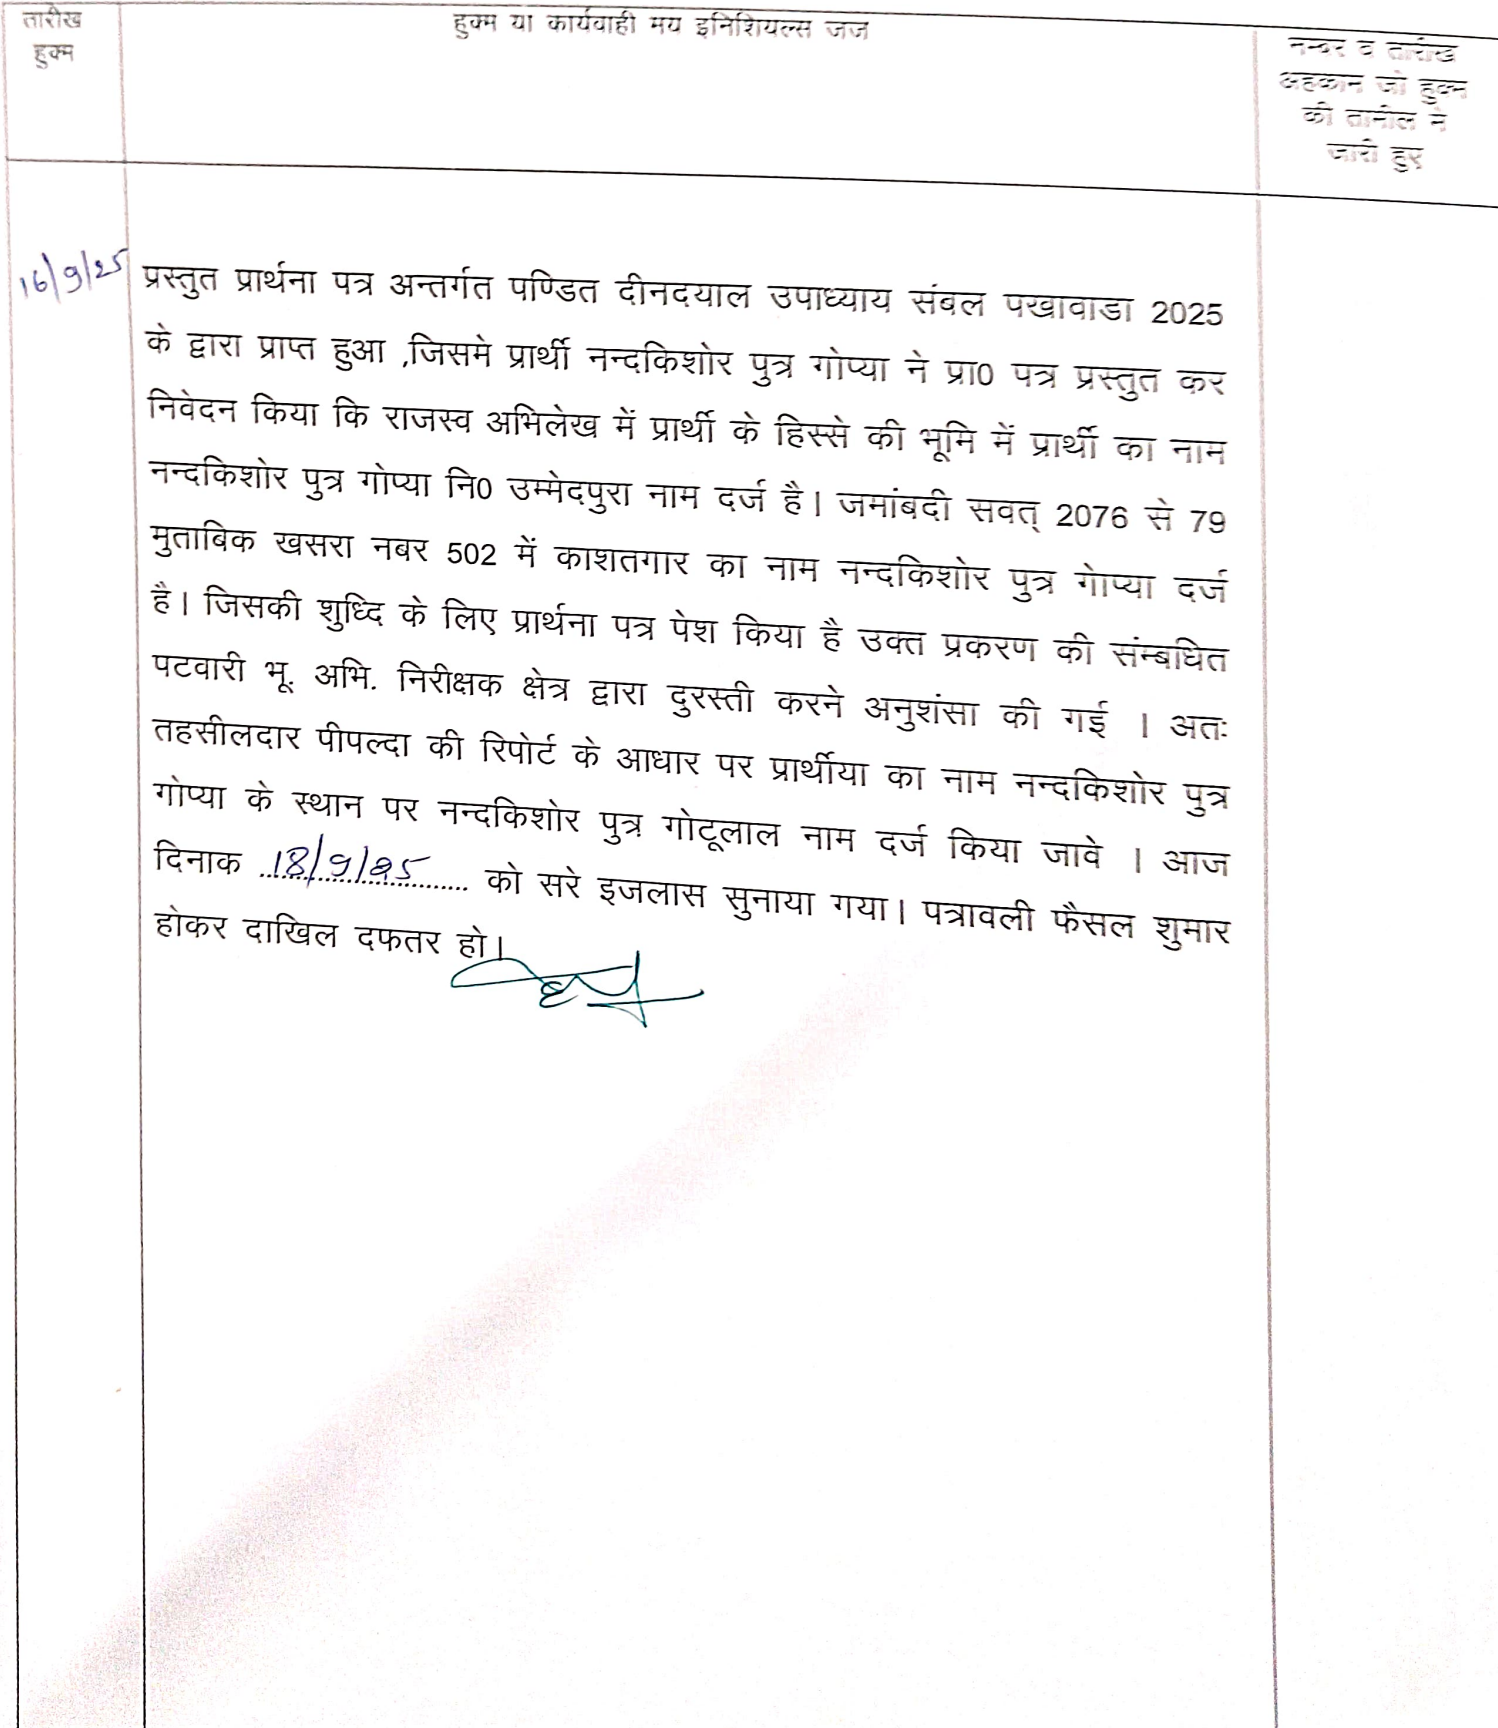 तारीख
हुक्म
हुक्म या कार्यवाही मय इनिशियल्स जज
नम्बर व तारीख
अहकाम जो हुक्म
की तामील में
जारी हुए
16/9/25
प्रस्तुत प्रार्थना पत्र अन्तर्गत पण्डित दीनदयाल उपाध्याय संबल पखावाडा 2025
के द्वारा प्राप्त हुआ ,जिसमे प्रार्थी नन्दकिशोर पुत्र गोप्या ने प्रा0 पत्र प्रस्तुत कर
निवेदन किया कि राजस्व अभिलेख में प्रार्थी के हिस्से की भूमि में प्रार्थी का नाम
नन्दकिशोर पुत्र गोप्या नि0 उम्मेदपुरा नाम दर्ज है। जमांबदी सवत् 2076 से 79
मुताबिक खसरा नबर 502 में काशतगार का नाम नन्दकिशोर पुत्र गेाप्या दर्ज
है। जिसकी शुध्दि के लिए प्रार्थना पत्र पेश किया है उक्त प्रकरण की संम्बधित
पटवारी भू. अभि. निरीक्षक क्षेत्र द्वारा दुरस्ती करने अनुशंसा की गई । अतः
तहसीलदार पीपल्दा की रिपोर्ट के आधार पर प्रार्थीया का नाम नन्दकिशोर पुत्र
गोप्या के स्थान पर नन्दकिशोर पुत्र गोटूलाल नाम दर्ज किया जावे । आज
दिनाक 18/9/25 को सरे इजलास सुनाया गया। पत्रावली फैसल शुमार
होकर दाखिल दफतर हो।